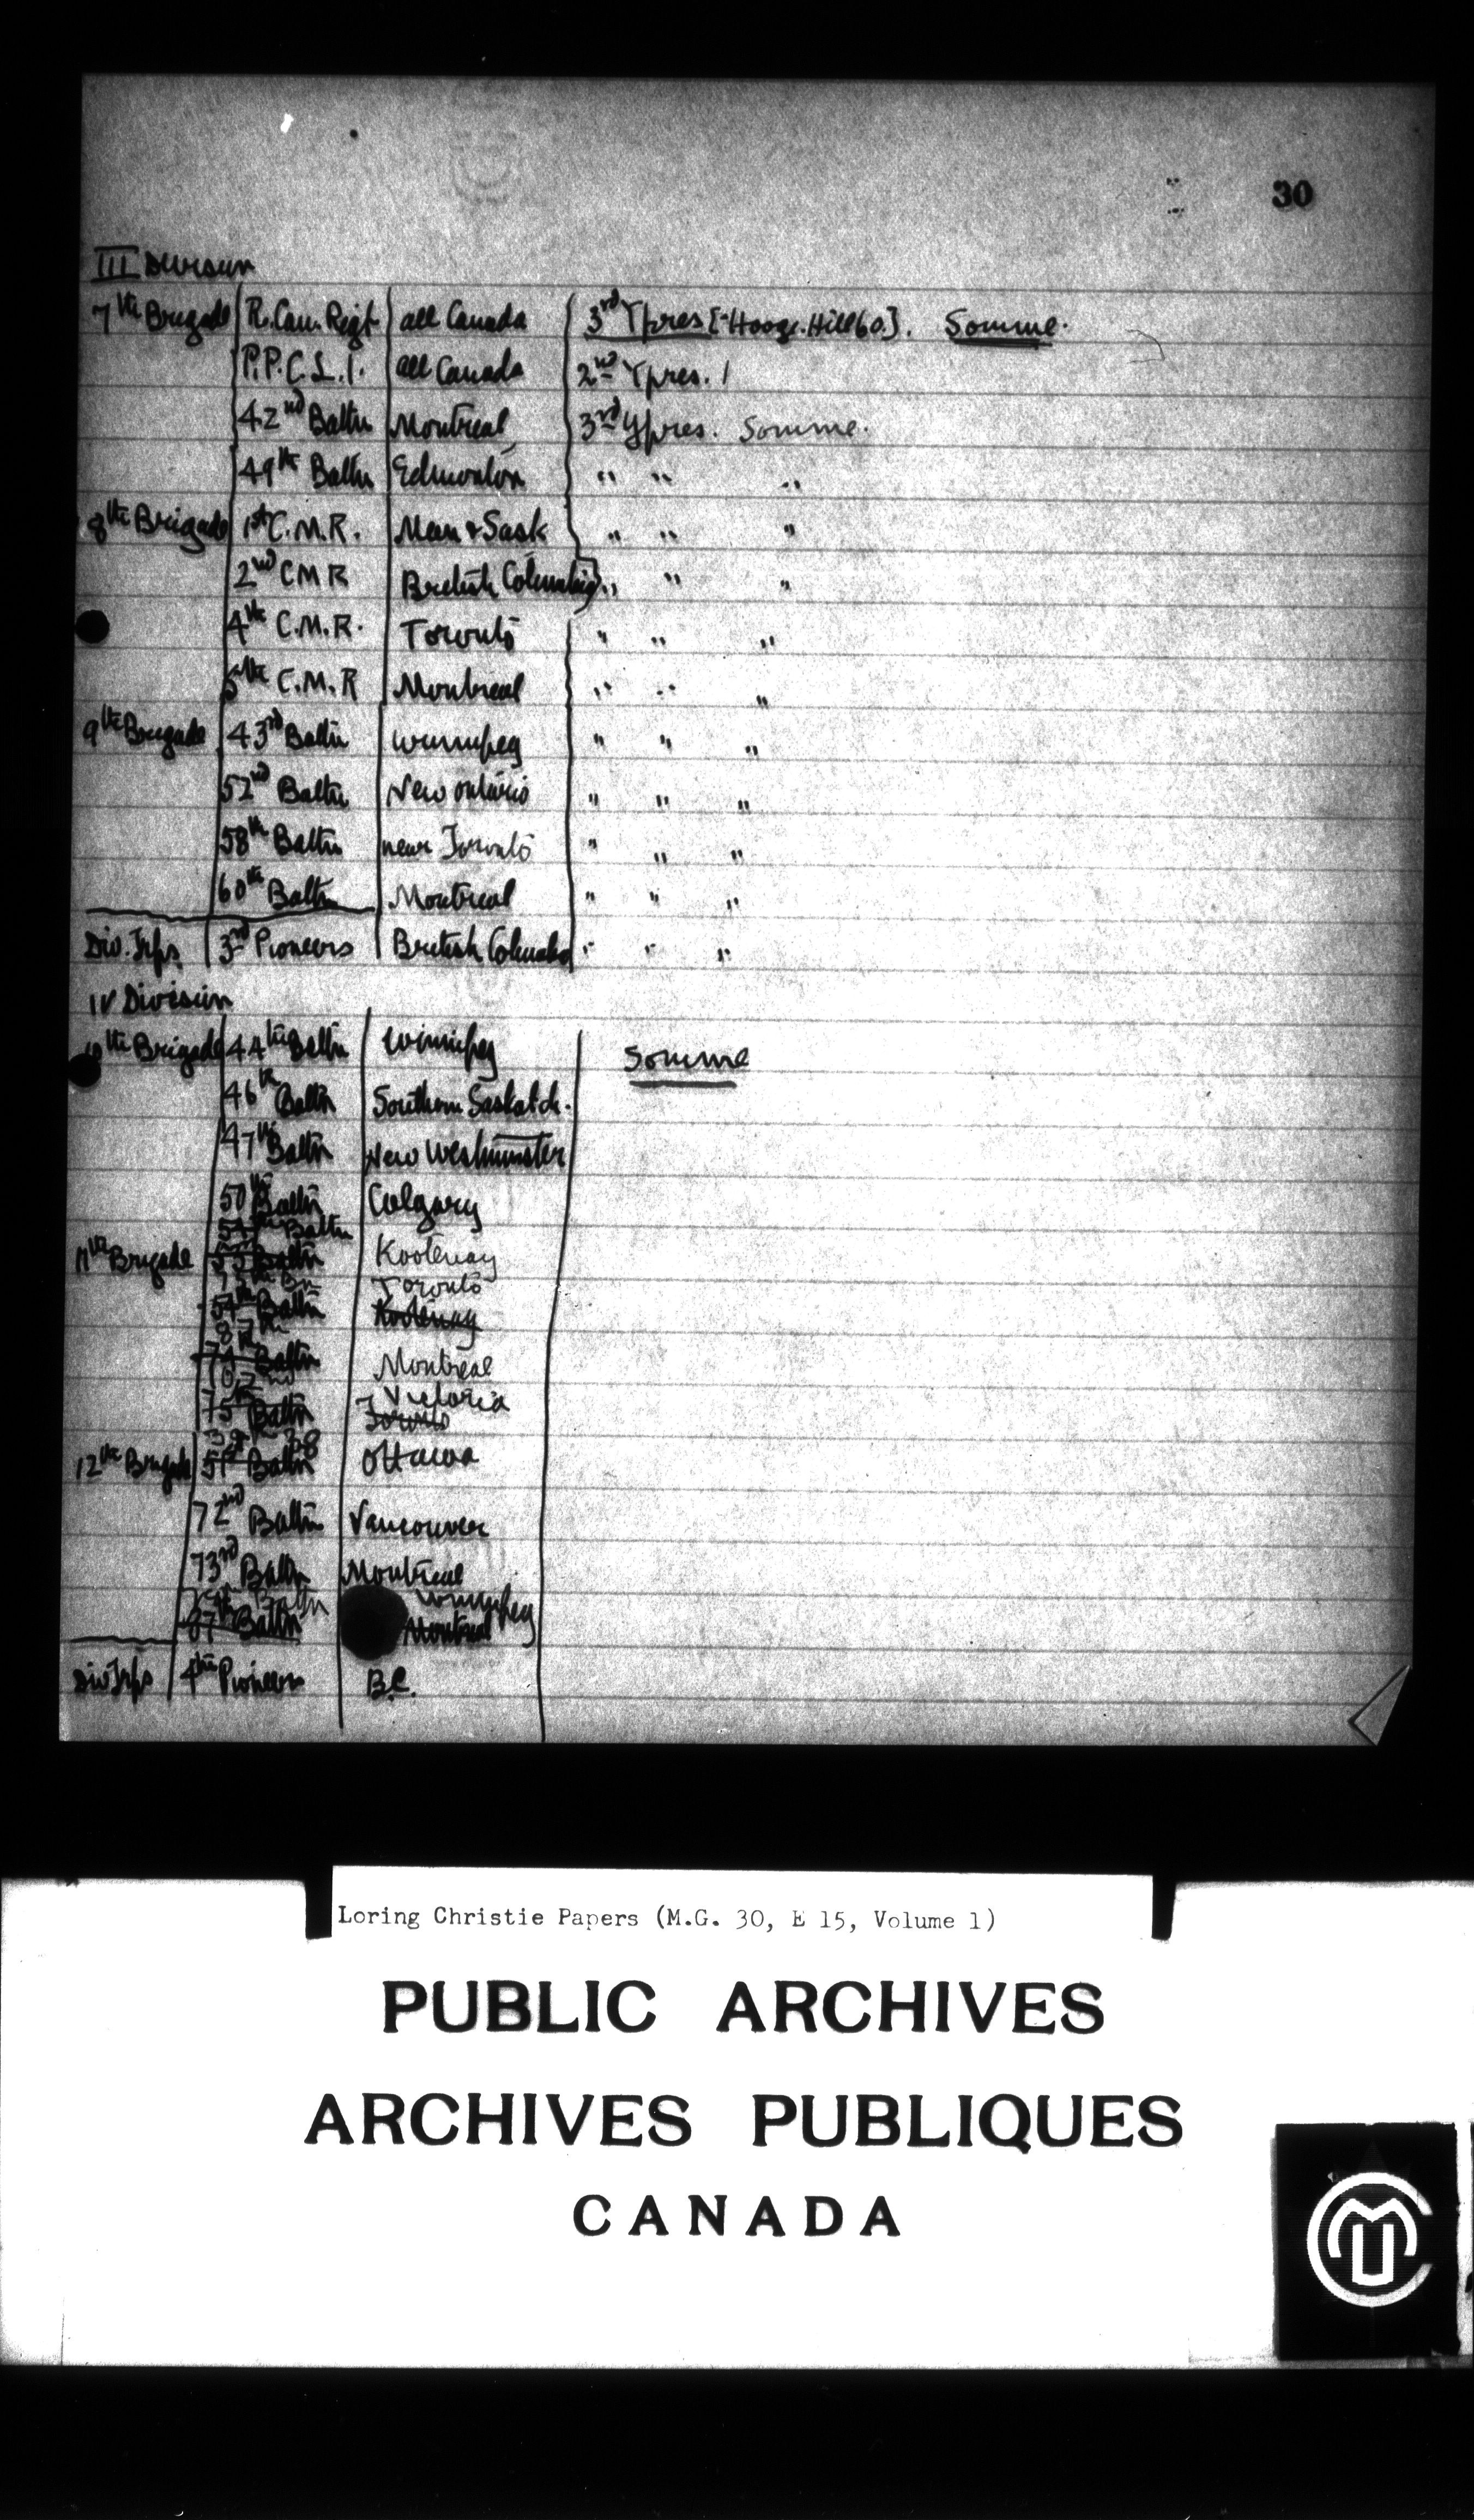 30
III Division
7th Brigade R. Can. Regt. all Canada 3rd Ypres [Hooge. Hill 60]. Somme.
P.P.C.L.I. all Canada 2nd Ypres.
42nd Battn Montreal 3rd Ypres. Somme.
49th Battn Edmonton " " "
8th Brigade 1st C.M.R. Man & Sask " " "
2nd CMR British Columbia " " "
4th C.M.R. Toronto " " "
5th C.M.R Montreal " " "
9th Brigade 43rd Battn Winnipeg " " "
52nd Battn New Ontario " " "
58th Battn near Toronto " " "
60th Battn Montreal " " "
Div. Trps. 3rd Pioneers British Columbia " " "
IV Division
10th Brigade 44th Battn Winnipeg Somme
46th Battn Southern Saskatch.
47th Battn New Westminster
50th Battn Calgary
54th Battn
11th Brigade 53 Battn Kootenay
75th Bn Toronto
54th Battn Kootenay
87th
74 Battn Montreal
102nd Victoria
75th Battn Toronto
38
12th Brigade 51st Battn Ottawa
72nd Battn Vancouver
73rd Battn Montreal
78th Battn Winnipeg
87th Battn Montreal
Div Trps 4th Pioneers B.C.
Loring Christie Papers (M.G. 30, E 15, Volume 1)
PUBLIC ARCHIVES
ARCHIVES PUBLIQUES
CANADA